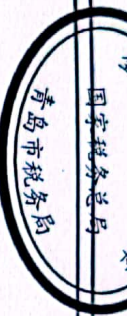 国家税务总局
青岛市税务局